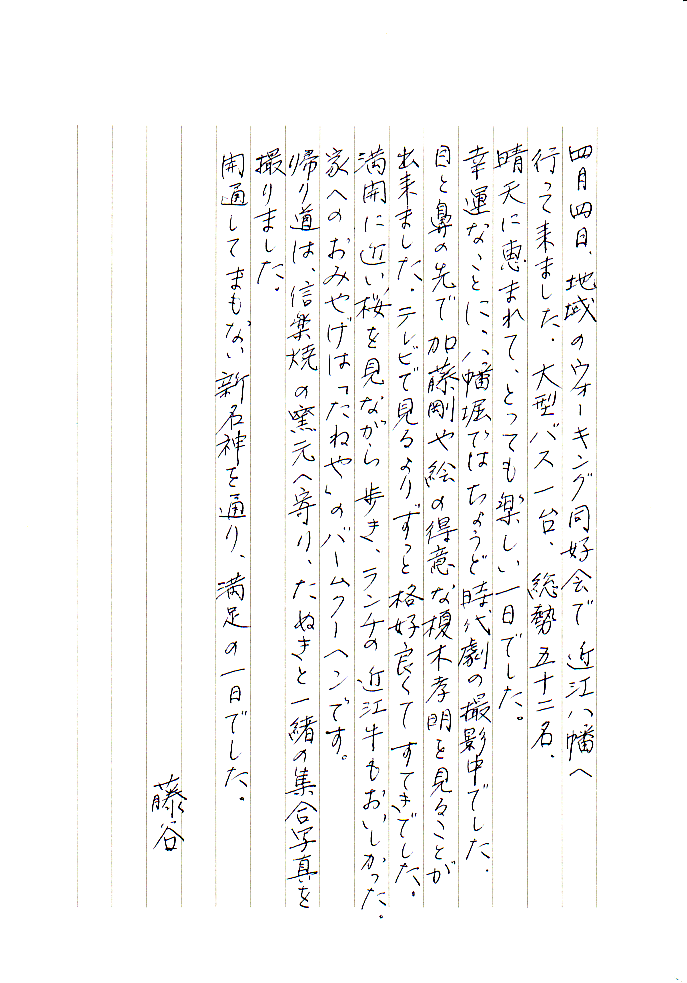 四月四日、地域のウオーキング同好会で近江八幡へ
行って来ました。大型バス一台、総勢五十二名。
晴天に恵まれて、とっても楽しい一日でした。
幸運なことに、八幡堀ではちょうど時代劇の撮影中でした。
目と鼻の先で加藤剛や絵の得意な榎木孝明を見ることが
出来ました。テレビで見るよりずっと格好良くてすてきでした。
満開に近い桜を見ながら歩き、ランチの近江牛もおいしかった。
家へのおみやげは「たねや」のバームクーヘンです。
帰り道は、信楽焼の窯元へ寄り、たぬきと一緒の集合写真を
撮りました。
開通してまもない新名神を通り、満足の一日でした。
藤谷